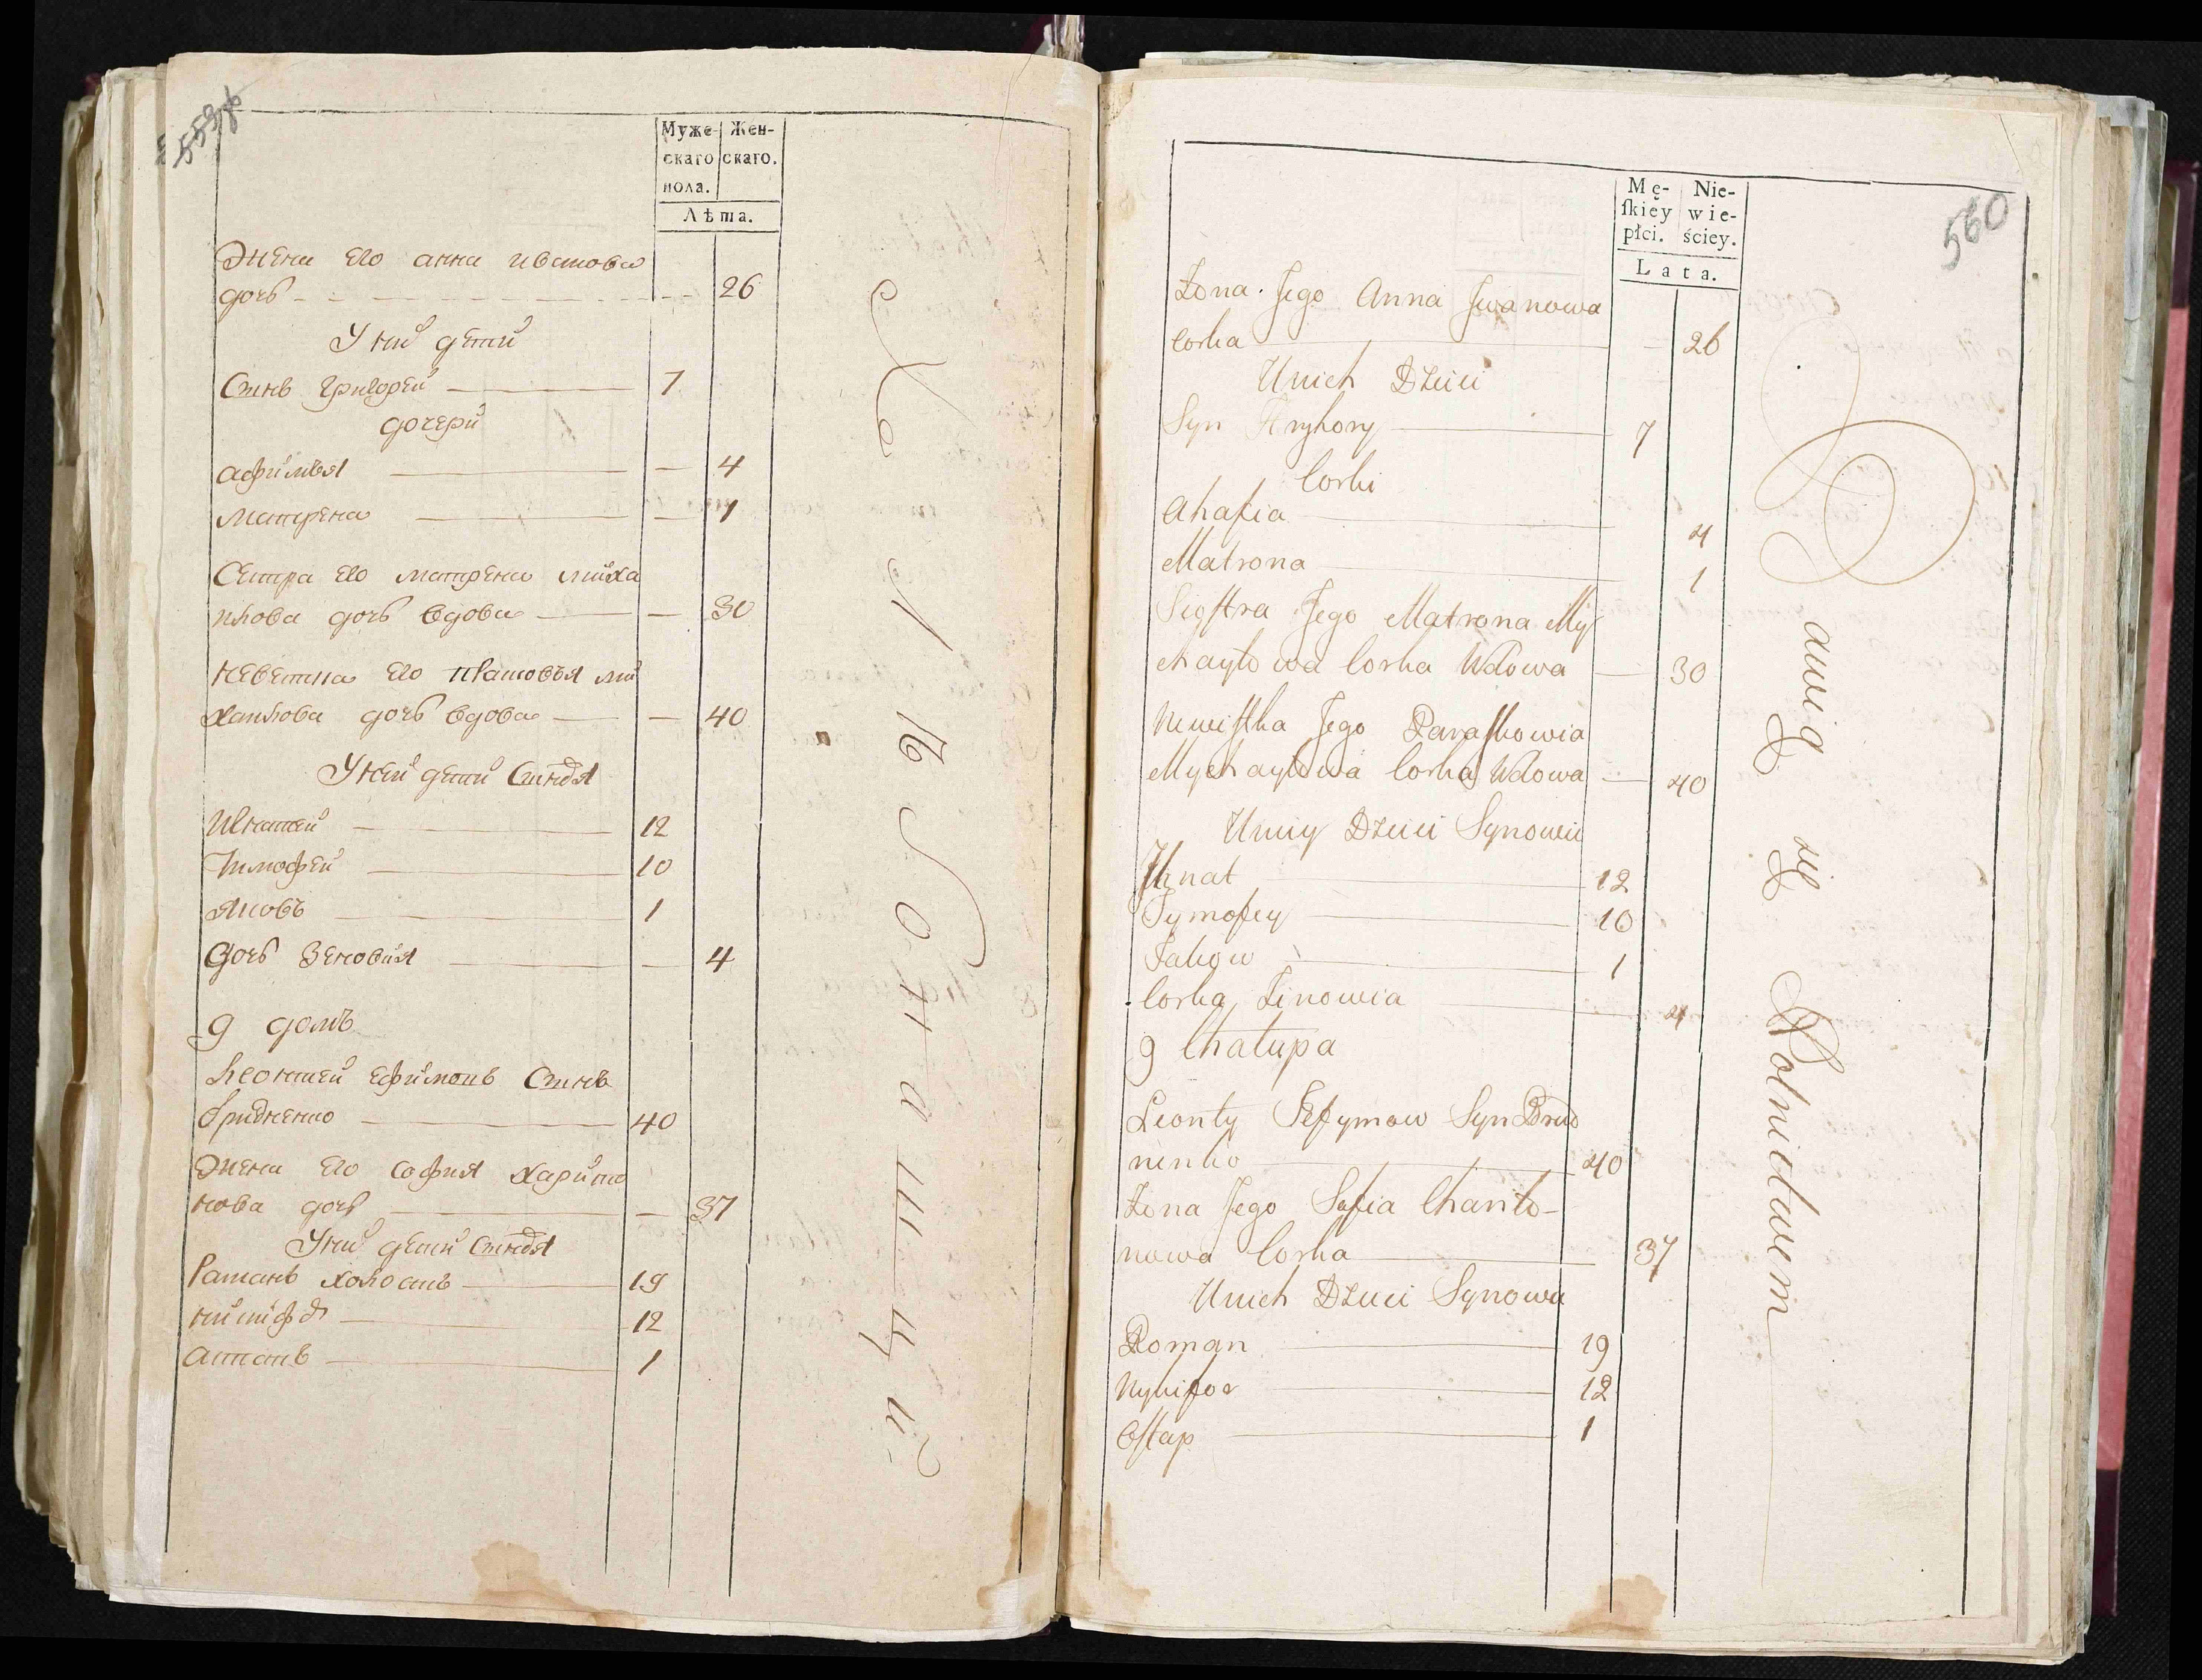 559об
Муже- Жен-
скаго скаго.
пола.
Лѣта.
Жена его анна иванова
дочь 26
У ни дети
Сынъ григорей 7
дочери
афимья 4
матрена 1
Сестра его матрена миха
илова дочь вдова 30
невестка его прасковья ми
хаилова дочь вдова 40
У ней дети Сыновя
Игнатей 12
Тимофей 10
яковъ 1
дочь Зеновия 4
9 домъ
Леонтей ефимовъ Сынъ
40
Жена его софия харито
нова дочь 37
У ни дети Сыновя
Раманъ холостъ 19
никифор 12
астапъ 1
560
Mę- Nie-
ſkiey wie-
płci. ściey.
Lata.
Żona Jego Anna Jwanowa
Corka 26
Unich Dzieci
Syn Hryhory 7
Corki
Ahafia 4
Matrona 1
Sioſtra Jego Matrona My
chayłowa Corka Wdowa 30
Newiſtka Jego Paraſkowia
Mychayłowa Corka Wdowa 40
Uniey Dzieci Synowie
Ihnat 12
Tymofey 10
Jakow 1
Corka Zinowia 4
9 Chałupa
Leonty Jefymow Syn
nenko 40
Żona Jego Sofia Charito-
nowa Corka 37
Unich Dzieci Synowie
Roman 19
Nykifor 12
Oſtap 1